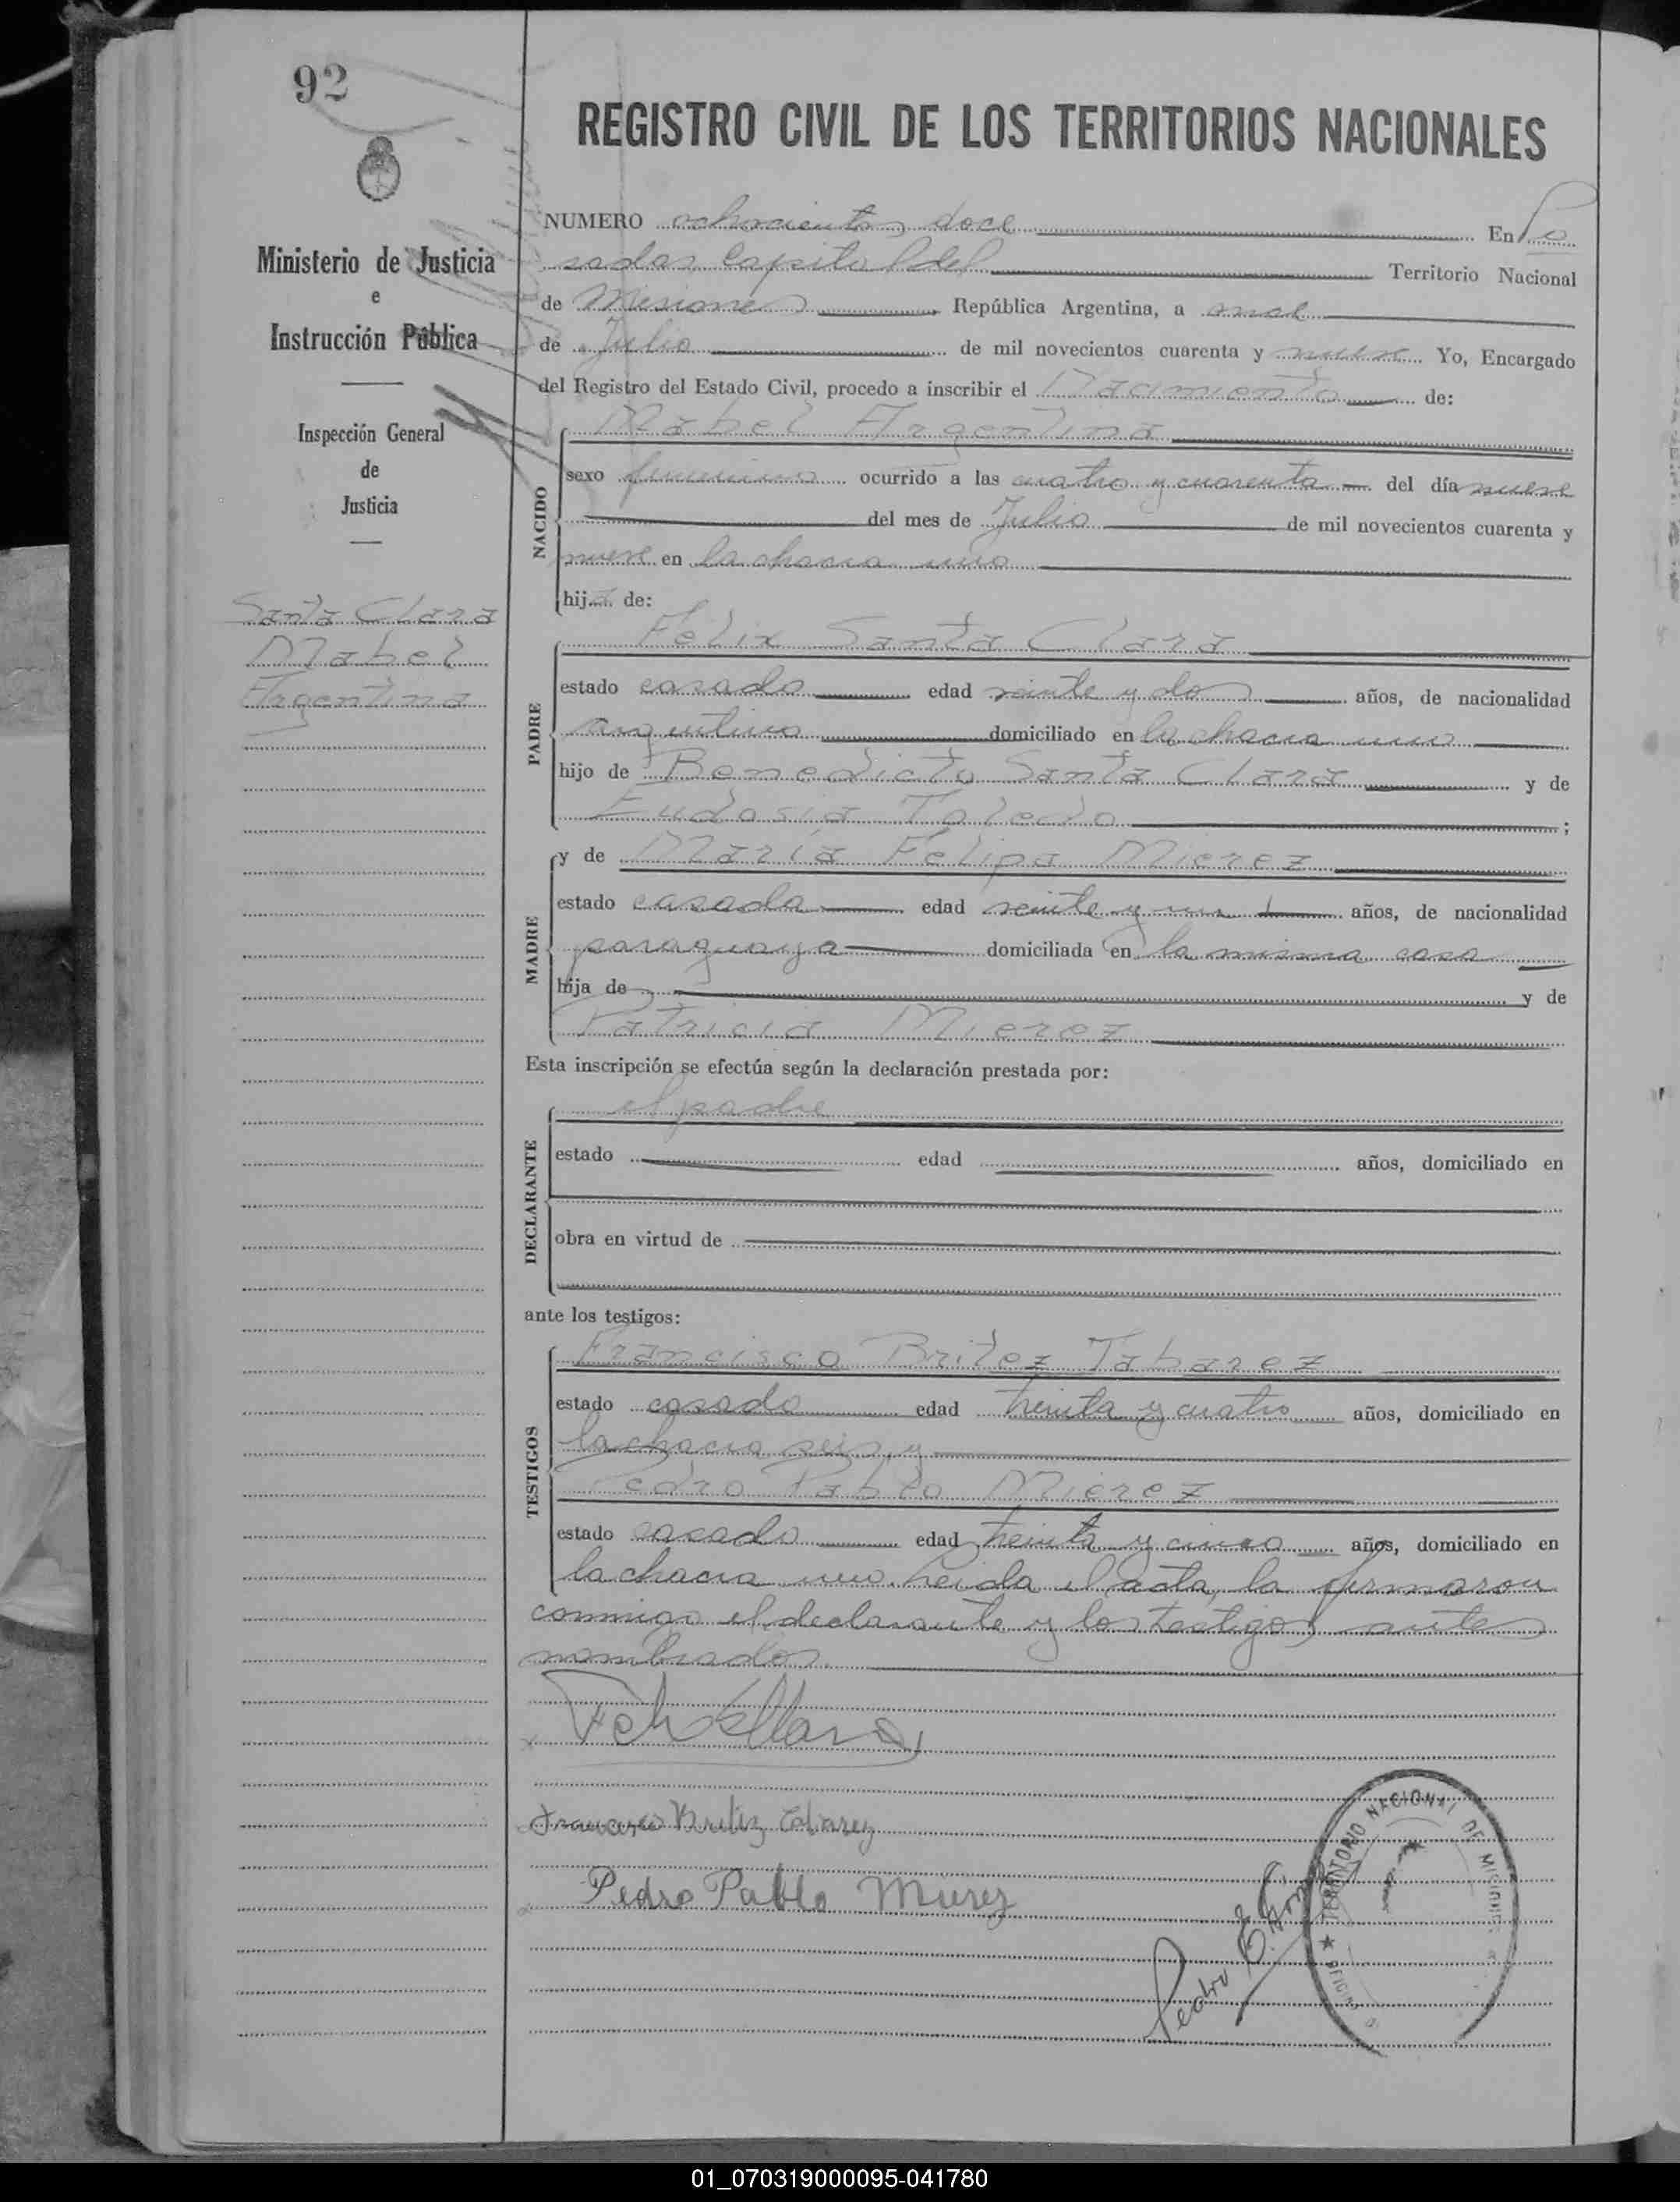 92
REGISTRO CIVIL DE LOS TERRITORIOS NACIONALES
Ministerio de Justicia
e
Instrucción Pública
Inspección General
de
Justicia
Santa Clara
Mabel
Argentina
NUMERO ochocientos doce En Po
sadas Capital del Territorio Nacional
de Misiones República Argentina, a once
de Julio de mil novecientos cuarenta y nueve Yo, Encargado
del Registro del Estado Civil, procedo a inscribir el Nacimiento de:
NACIDO
Mabel Argentina
sexo femenino ocurrido a las cuatro y cuarenta del día nueve
del mes de Julio de mil novecientos cuarenta y
nueve en la chacra uno
hija de:
PADRE
Felix Santa Clara
estado casado edad veinte y dos años, de nacionalidad
argentino domiciliado en la chacra uno
hijo de Benedicto Santa Clara y de
Eudosia Toledo;
MADRE
y de María Felipa Mierez
estado casada edad veinte y un años, de nacionalidad
paraguaya domiciliada en la misma casa
hija de y de
Patricia Mierez
Esta inscripción se efectúa según la declaración prestada por:
DECLARANTE
el padre
estado edad años, domiciliado en
obra en virtud de
ante los testigos:
TESTIGOS
Francisco Britez Tabarez
estado casado edad treinta y cuatro años, domiciliado en
la chacra seis y
Pedro Pablo Mierez
estado casado edad treinta y cinco años, domiciliado en
la chacra uno. Leida el acta, la firmaron
conmigo el declarante y los testigos antes
nombrados.
Francisco Britez Tabarez
Pedro Pablo Mierez
Pedro
TERRITORIO NACIONAL DE MISIONES
01_070319000095-041780